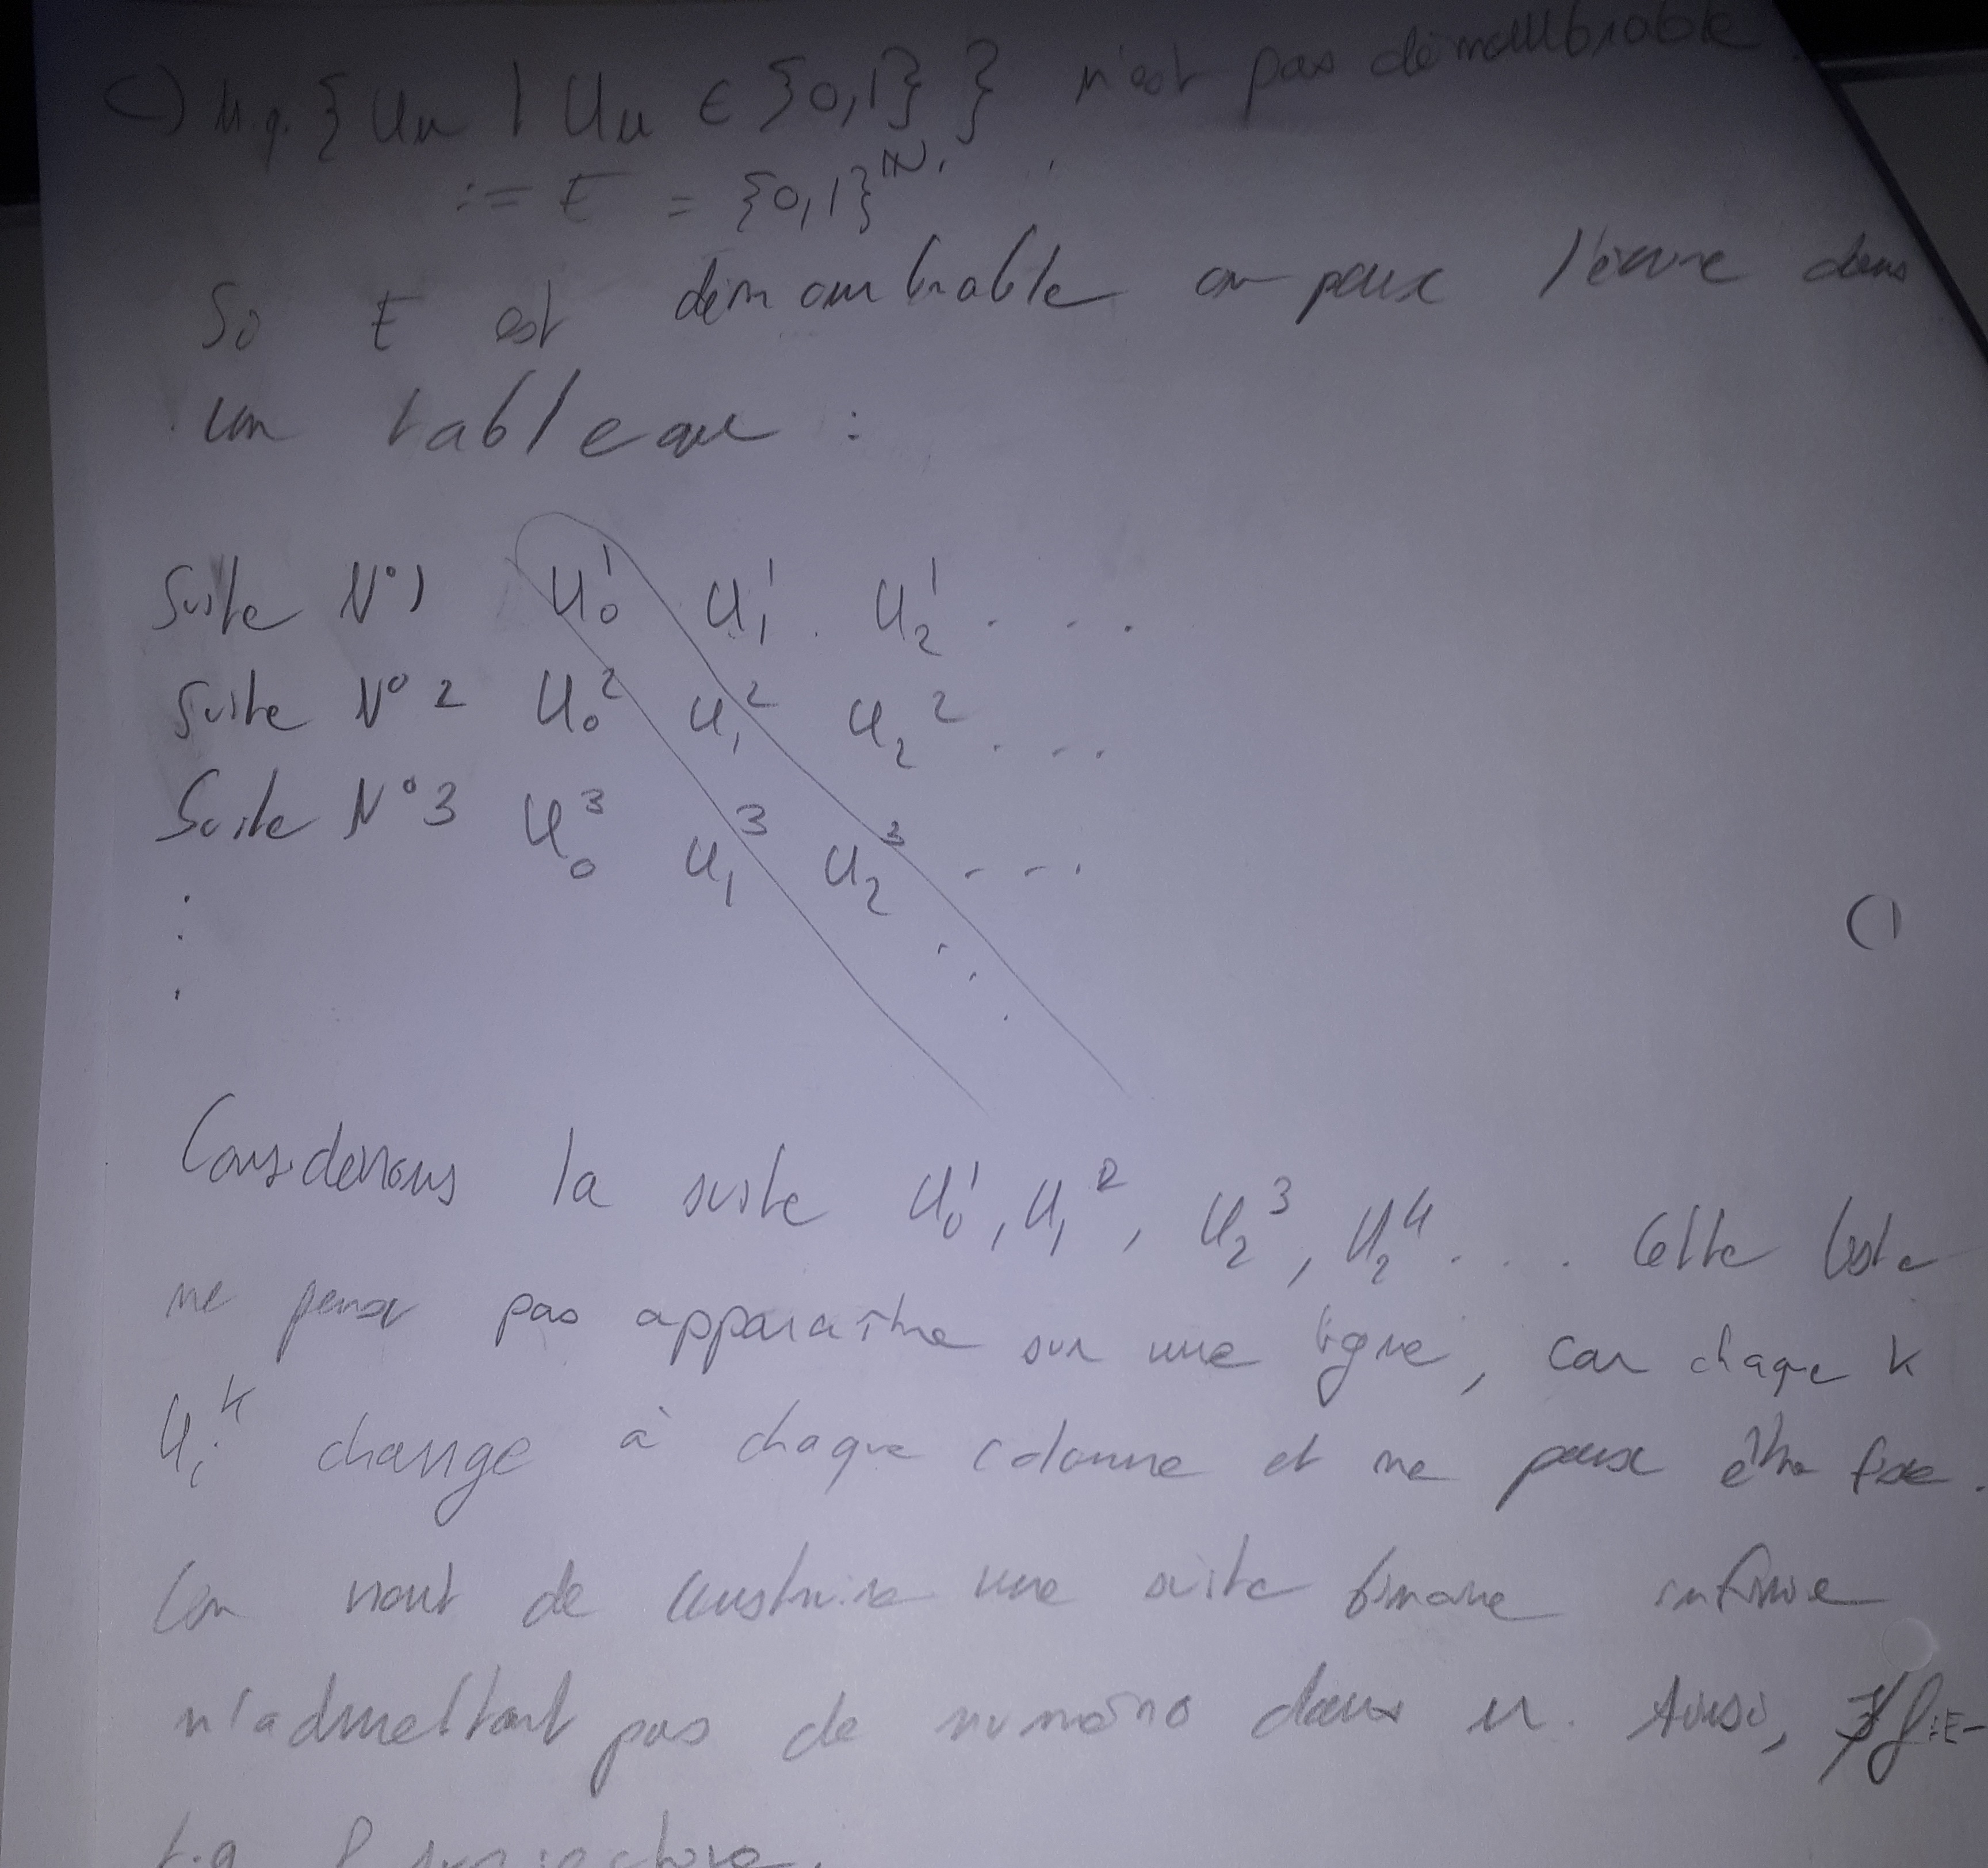 c) M.q. {Un | Un ∈ {0,1}} n'est pas dénombrable
:= E = {0,1}^ℕ.
Si E est dénombrable on peux l'écrire dans
un tableau :
Suite N°1 U₀¹ U₁¹ U₂¹ ...
Suite N°2 U₀² U₁² U₂² ...
Suite N°3 U₀³ U₁³ U₂³ ...
Considérons la suite U₀¹, U₁², U₂³, U₂⁴ .... Cette liste
ne peux pas apparaître sur une ligne, car chaque k
Uᵢᵏ change à chaque colonne et ne peux être fixe.
On vient de construire une suite binaire infinie
n'admettant pas de numéro dans u. Ainsi, ∄ f : E-
t.q. f surjective.